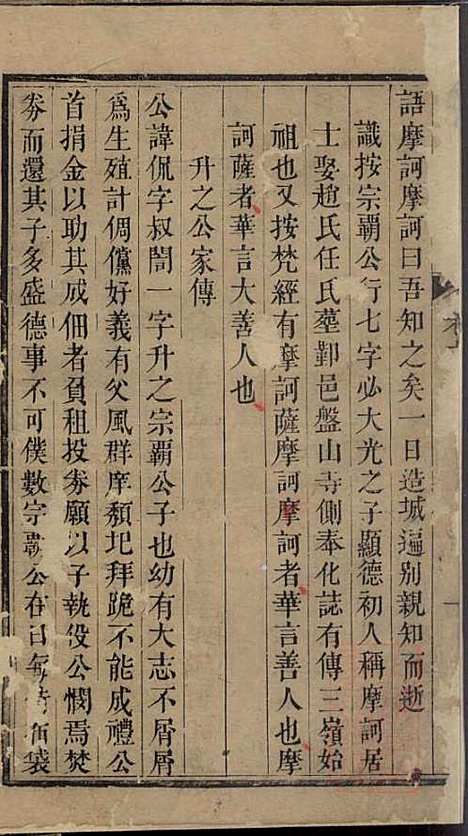 語摩訶摩訶曰吾知之矣一日造城遍别親知而逝
識按宗覇公行七字必大光之子顯德初人稱摩訶居
士娶趙氏任氏墓鄞邑盤山寺側奉化誌有傳三嶺始
祖也又按梵經有摩訶薩摩訶摩訶者華言善人也摩
訶薩者華言大善人也
升之公家傳
公諱侃字叔誾一字升之宗覇公子也幼有大志不屑屑
爲生殖計倜儻好義有父風群庠頽圮拜跪不能成禮公
首捐金以助其成佃者負租投劵願以子執役公憫焉焚
劵而還其子多盛德事不可僕數宗覇公在日每
袋